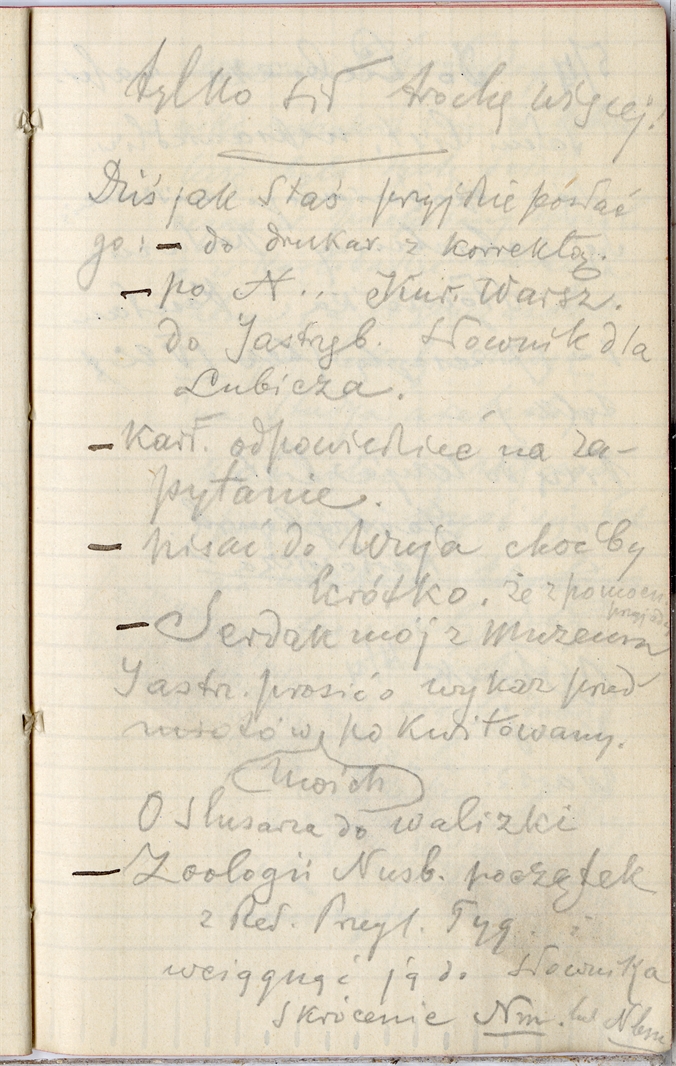 tylko sił trochę więcej!
Dziś jak Staś przyjdzie posłać
go: – do drukar. z korrektą.
– po N... Kur. Warsz.
do Jastrzęb. Słownik dla
Lubicza.
– Karł. odpowiedzieć na za-
pytanie.
– pisać do Wuja choćby
krótko, że z pomocą
przyjadę
– Serdak mój z Muzeum
Jastrz. prosić o wykaz przed
miotów, pokwitowany.
moich
O ślusarza do walizki
– Zoologii Nusb. początek
z Red. Przegl. Tyg. i
wciągnąć ją do Słownika
skrócenie Nm. lub Nbm